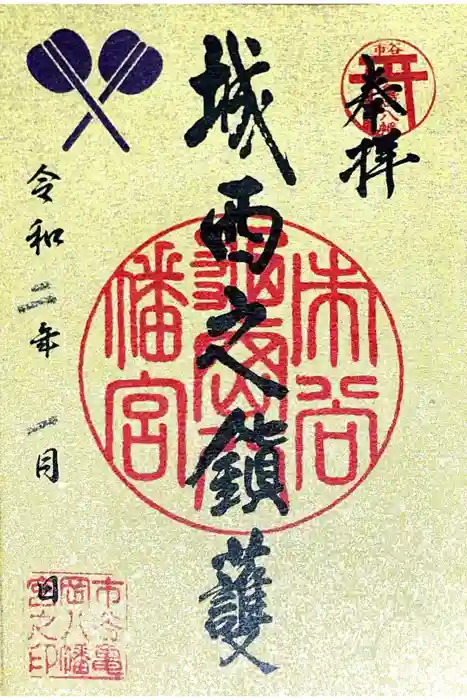 奉拝
市谷
八幡
城西之鎮護
市谷
亀岡八
幡宮
令和二年 一月 日
市谷亀
岡八幡
宮之印